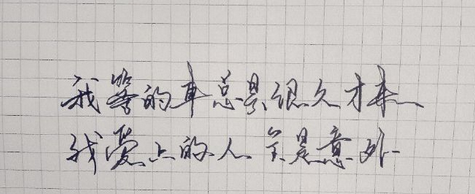 我等的車总是很久才来
我愛上的人全是意外